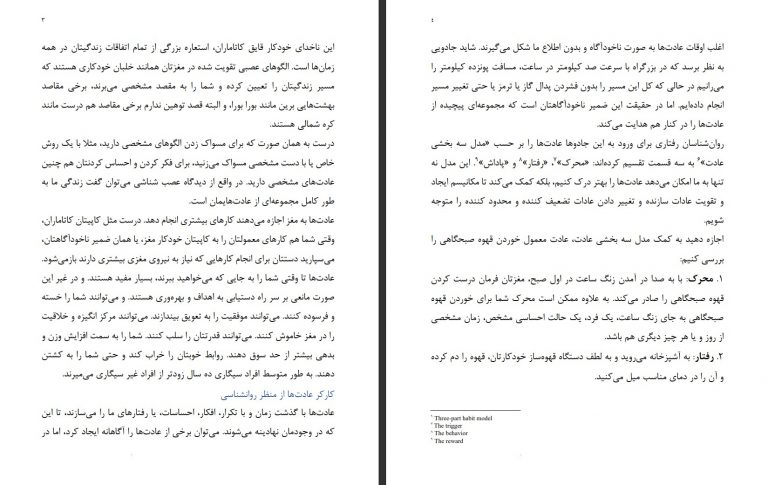 ۳
این ناخدای خودکار قایق کاتاماران، استعاره بزرگی از تمام اتفاقات زندگیتان در همه
زمان‌ها است. الگوهای عصبی تقویت شده در مغزتان همانند خلبان خودکاری هستند که
مسیر زندگیتان را تعیین کرده و شما را به مقصد مشخصی می‌برند، برخی مقاصد
بهشت‌هایی برین مانند بورا بورا، و البته قصد توهین ندارم برخی مقاصد هم درست مانند
کره شمالی هستند.
درست به همان صورت که برای مسواک زدن الگوهای مشخصی دارید، مثلا با یک روش
خاص یا با دست مشخصی مسواک می‌زنید، برای فکر کردن و احساس کردنتان هم چنین
عادت‌های مشخصی دارید. در واقع از دیدگاه عصب شناشی می‌توان گفت زندگی ما به
طور کامل مجموعه‌ای از عادت‌هایمان است.
عادت‌ها به مغز اجازه می‌دهند کارهای بیشتری انجام دهد. درست مثل کاپیتان کاتاماران،
وقتی شما هم کارهای معمولتان را به کاپیتان خودکار مغز، یا همان ضمیر ناخودآگاهتان،
می‌سپارید دستتان برای انجام کارهایی که نیاز به نیروی مغزی بیشتری دارند بازمی‌شود.
عادت‌ها تا وقتی شما را به جایی که می‌خواهید ببرند، بسیار مفید هستند. و در غیر این
صورت مانعی بر سر راه دستیابی به اهداف و بهره‌وری هستند. و می‌توانند شما را خسته
و فرسوده کنند. می‌توانند موفقیت را به تعویق بیندازند. می‌توانند مرکز انگیزه و خلاقیت
را در مغز خاموش کنند. می‌توانند قدرتتان را سلب کنند. شما را به سمت افزایش وزن و
بدهی بیشتر از حد سوق دهند. روابط خوبتان را خراب کند و حتی شما را به کشتن
دهند. به طور متوسط افراد سیگاری ده سال زودتر از افراد غیر سیگاری می‌میرند.
کارکر عادت‌ها از منظر روانشناسی
عادت‌ها با گذشت زمان و با تکرار، افکار، احساسات، یا رفتارهای ما را می‌سازند، تا این
که در وجودمان نهادینه می‌شوند. می‌توان برخی از عادت‌ها را آگاهانه ایجاد کرد، اما در
٤
اغلب اوقات عادت‌ها به صورت ناخودآگاه و بدون اطلاع ما شکل می‌گیرند. شاید جادویی
به نظر برسد که در بزرگراه با سرعت صد کیلومتر در ساعت، مسافت پونزده کیلومتر را
می‌رانیم در حالی که کل این مسیر را بدون فشردن پدال گاز یا ترمز یا حتی تغییر مسیر
انجام داده‌ایم. اما در حقیقت این ضمیر ناخودآگاهتان است که مجموعه‌ای پیچیده از
عادت‌ها را در کنار هم هدایت می‌کند.
روان‌شناسان رفتاری برای ورود به این جادوها عادت‌ها را بر حسب «مدل سه بخشی
عادت»⁶ به سه قسمت تقسیم کرده‌اند: «محرک»⁷، «رفتار»⁸ و «پاداش»⁹. این مدل نه
تنها به ما امکان می‌دهد عادت‌ها را بهتر درک کنیم، بلکه کمک می‌کند تا مکانیسم ایجاد
و تقویت عادات سازنده و تغییر دادن عادات تضعیف کننده و محدود کننده را متوجه
شویم.
اجازه دهید به کمک مدل سه بخشی عادت، عادت معمول خوردن قهوه صبحگاهی را
بررسی کنیم:
۱. محرک: با به صدا در آمدن زنگ ساعت در اول صبح، مغزتان فرمان درست کردن
قهوه صبحگاهی را صادر می‌کند. به علاوه ممکن است محرک شما برای خوردن قهوه
صبحگاهی به جای زنگ ساعت، یک فرد، یک حالت احساسی مشخص، زمان مشخصی
از روز و یا هر چیز دیگری هم باشد.
۲. رفتار: به آشپزخانه می‌روید و به لطف دستگاه قهوه‌ساز خودکارتان، قهوه را دم کرده
و آن را در دمای مناسب میل می‌کنید.
Three-part habit model
The trigger
The behavior
The reward